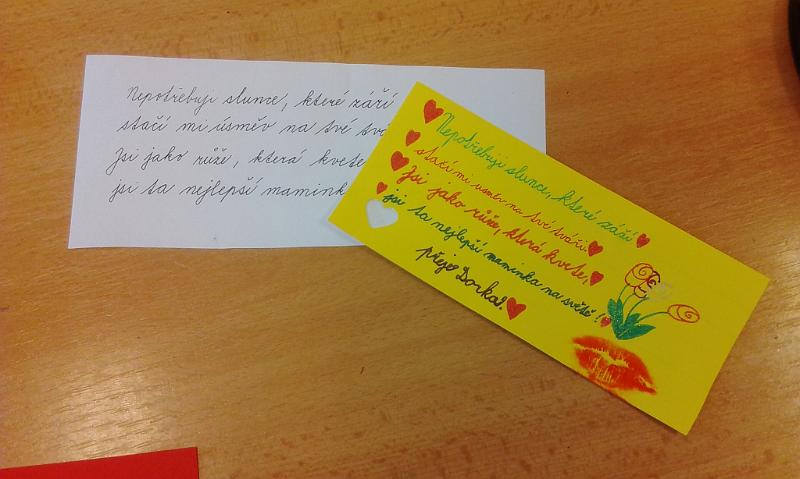 Nepotřebuji slunce, které září
stačí mi úsměv na tvé tvá
Jsi jako růže, která kvete
jsi ta nejlepší mamink
Nepotřebuji slunce, které září
stačí mi usměv na tvé tváři.
Jsi jako růže, která kvete,
jsi ta nejlepší maminka na světě!
přeje Dorka!